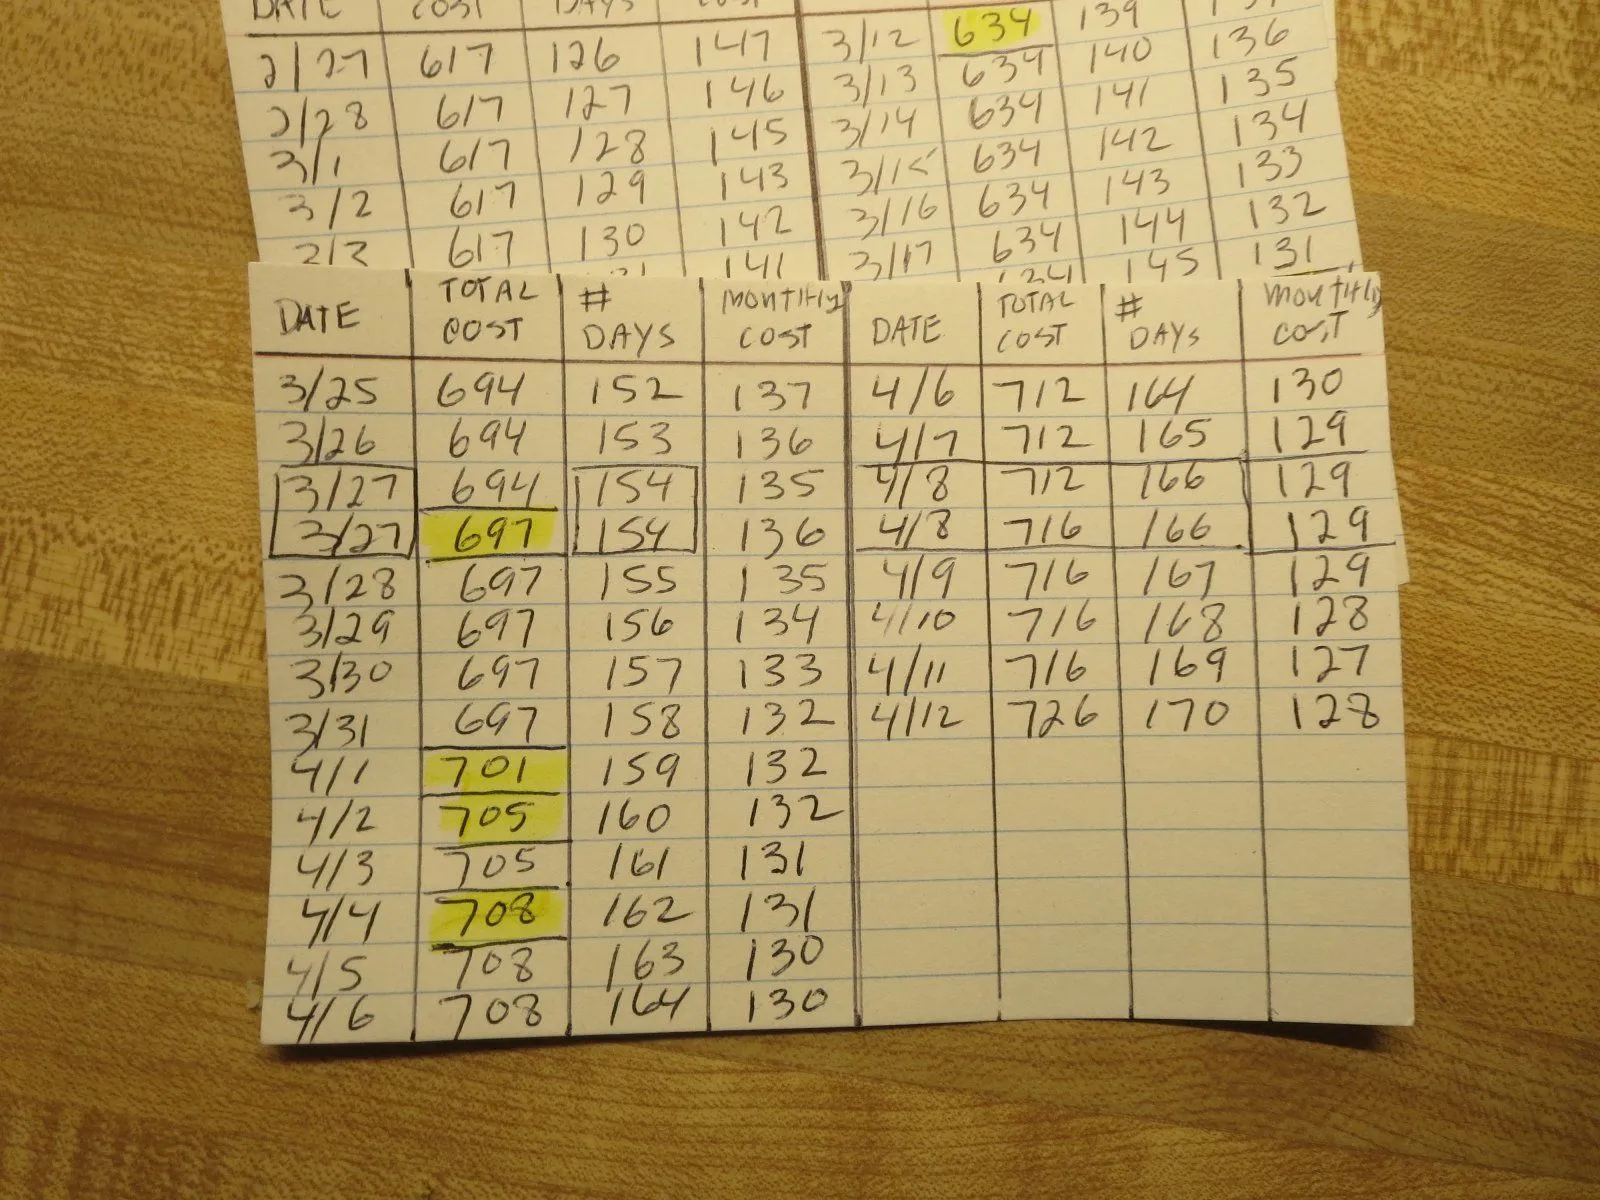 DATE COST DAYS COST
2/27 617 126 147 3/12 634 139
2/28 617 127 146 3/13 634 140 136
3/1 617 128 145 3/14 634 141 135
3/2 617 129 143 3/15 634 142 134
3/3 617 130 142 3/16 634 143 133
141 3/17 634 144 132
145 131
DATE TOTAL COST # DAYS MONTHLY COST DATE TOTAL COST # DAYS MONTHLY COST
3/25 694 152 137 4/6 712 164 130
3/26 694 153 136 4/7 712 165 129
3/27 694 154 135 4/8 712 166 129
3/27 697 154 136 4/8 716 166 129
3/28 697 155 135 4/9 716 167 129
3/29 697 156 134 4/10 716 168 128
3/30 697 157 133 4/11 716 169 127
3/31 697 158 132 4/12 726 170 128
4/1 701 159 132
4/2 705 160 132
4/3 705 161 131
4/4 708 162 131
4/5 708 163 130
4/6 708 164 130